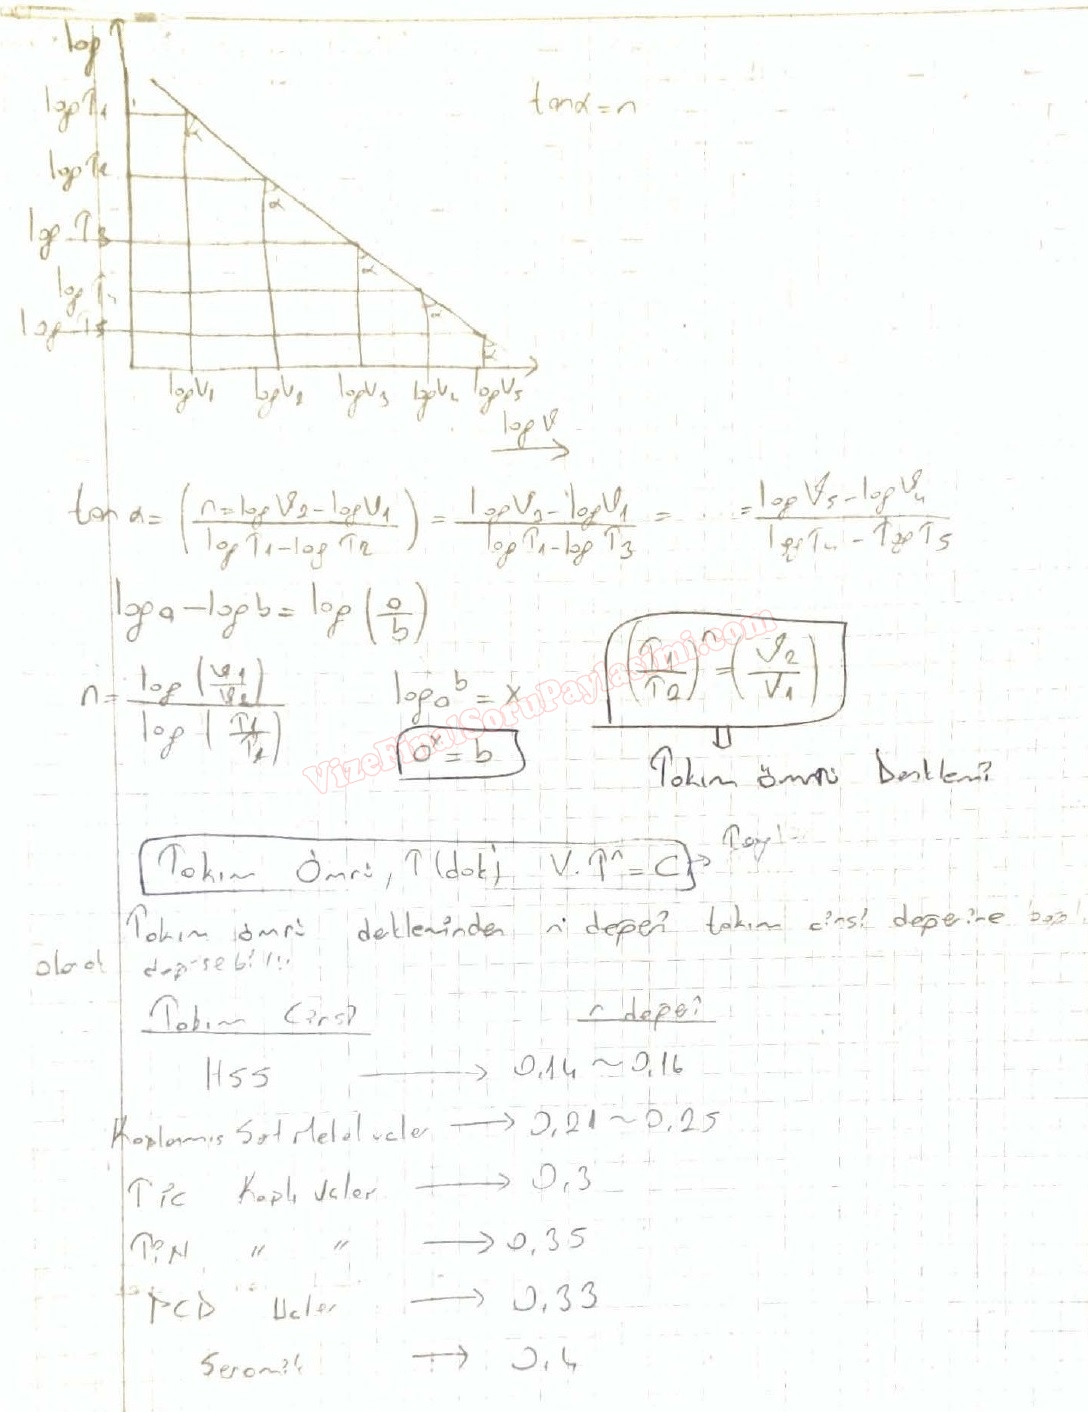 log
tanα = n
log T1
log T2
log T3
log T4
log T5
log V1 log V2 log V3 log V4 log V5
log V
tan α = (n = log V2 - log V1 / log T1 - log T2) = log V3 - log V1 / log T1 - log T3 = ..... = log V5 - log V4 / log T4 - log T5
log a - log b = log (a/b)
n = log (V1/V2) / log (T1/T2) log a b = x (T1/T2)^n = (V2/V1)
a^x = b
Takım ömrü Denklemi
Takım Ömrü, T(dak) V.T^n = C →
Takım ömrü denkleminden n değeri takım cinsi değerine bağlı
olarak değişebilir.
Takım Cinsi n değeri
HSS → 0,14 ~ 0,16
Kaplanmış Sert Metal uçlar → 0,21 ~ 0,25
TiC Kaplı uçlar → 0,3
TiN " " → 0,35
PCD Uçlar → 0,33
Seramik → 0,4
VizeFinalSoruPaylasimi.com